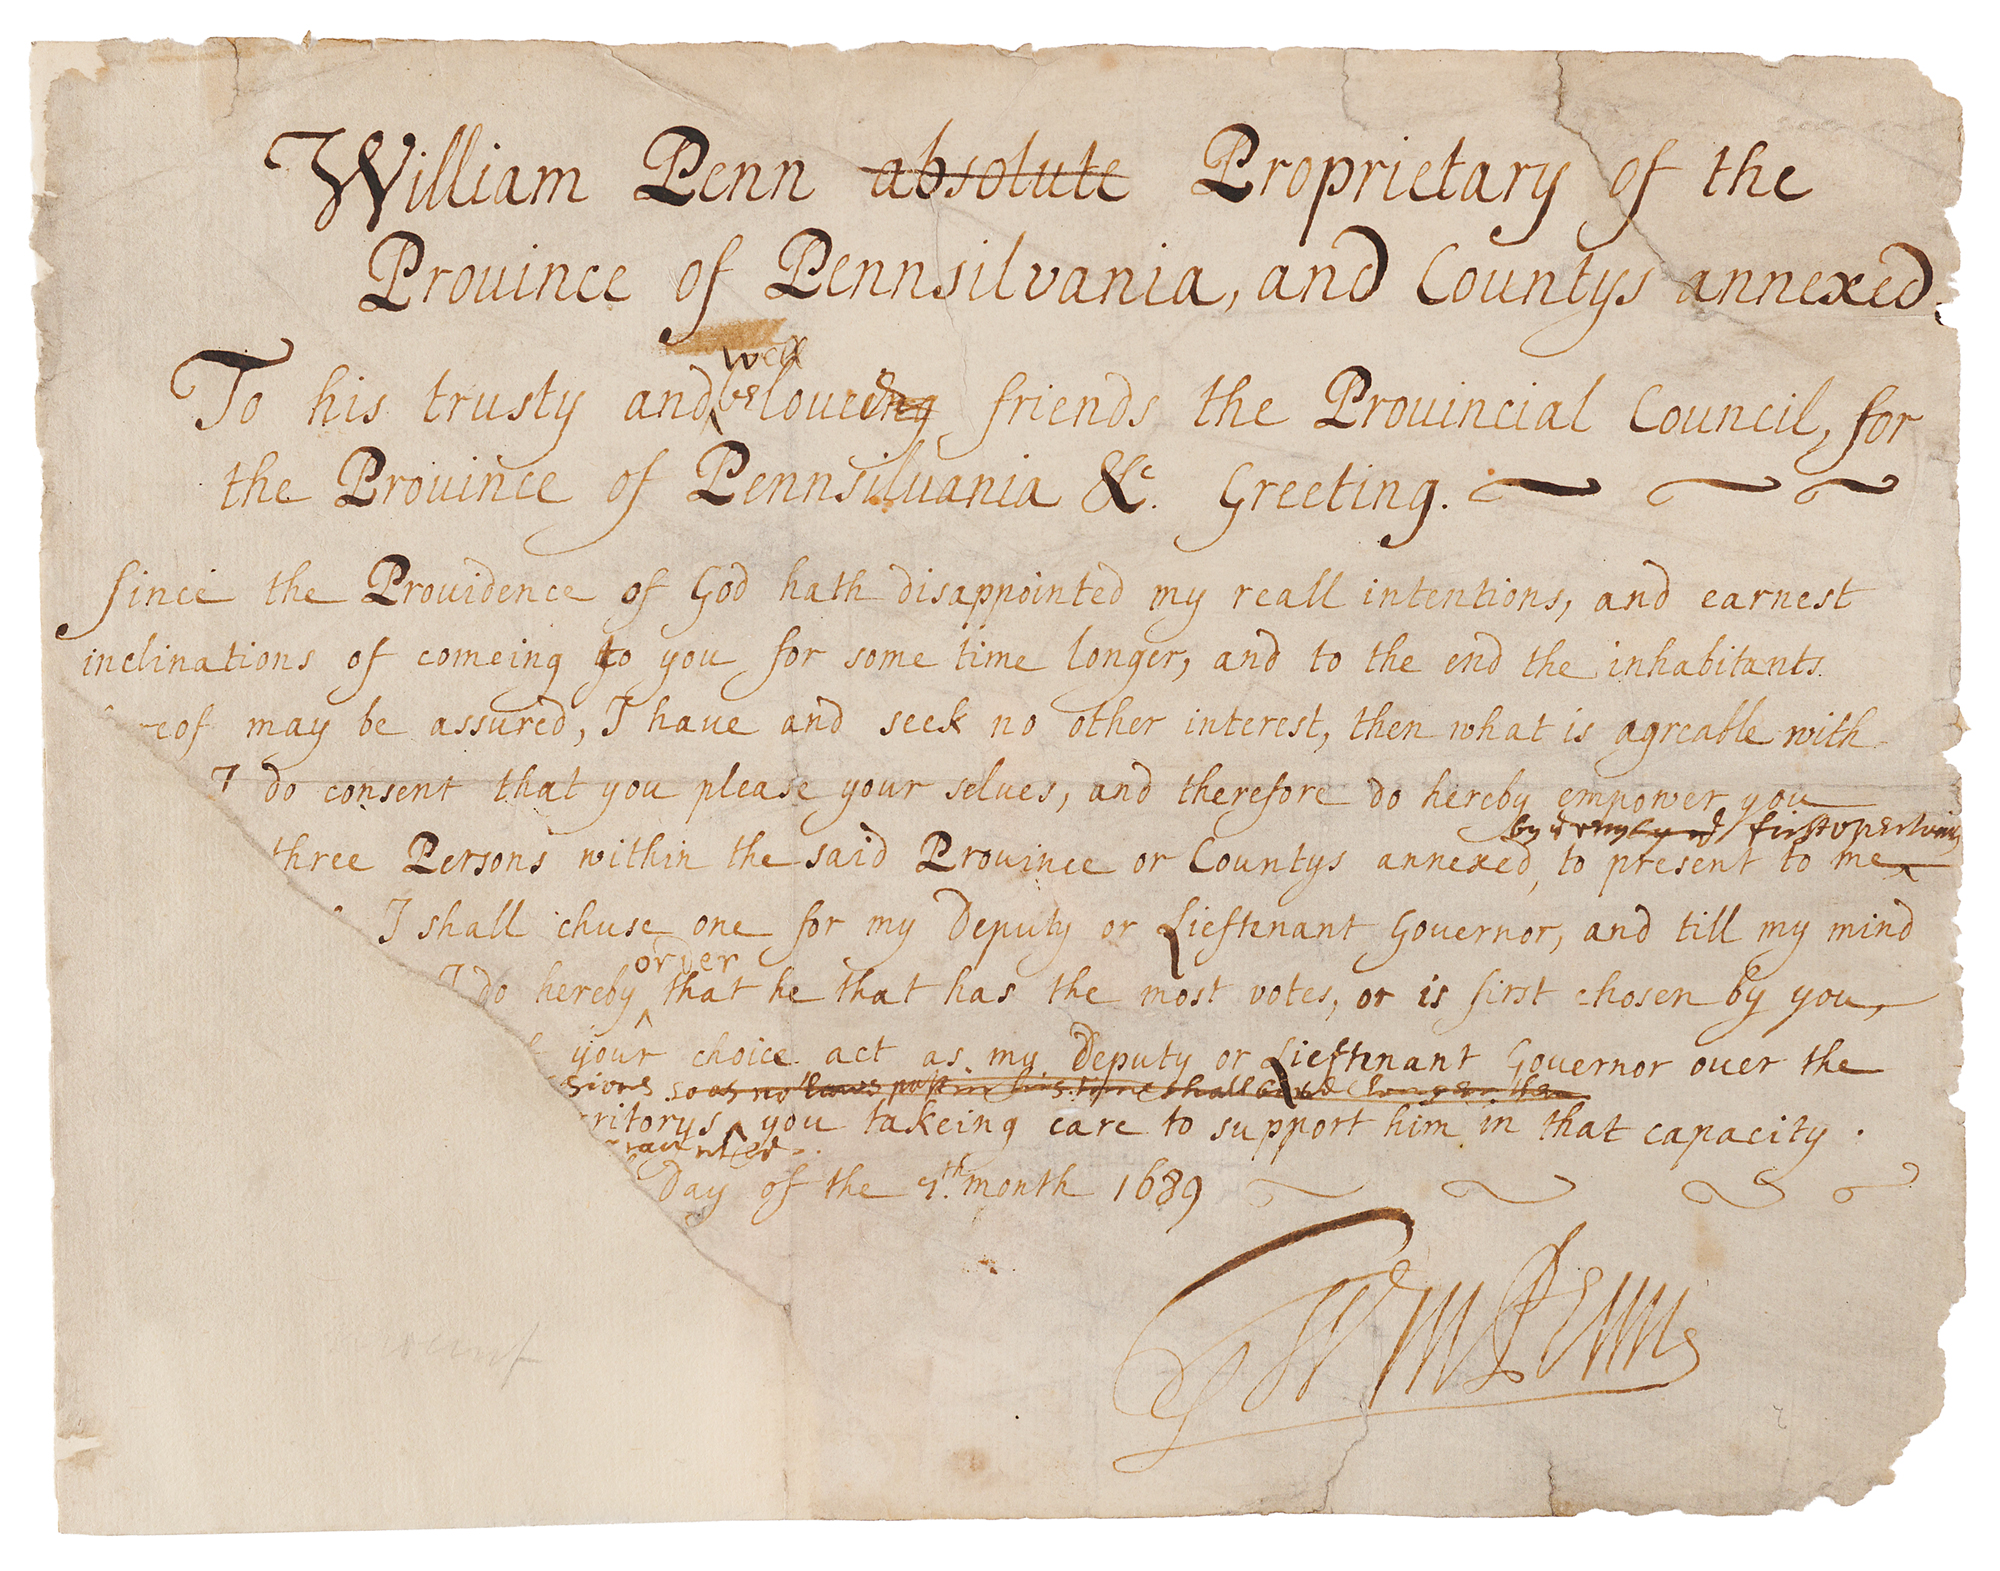 William Penn absolute Proprietary of the
Prouince of Pennsilvania, and Countys annexed.
well
To his trusty and beloueing friends the Prouincial Council, for
the Prouince of Pennsiluania &c. Greeting.
Since the Prouidence of God hath disappointed my reall intentions, and earnest
inclinations of comeing to you for some time longer, and to the end the inhabitants
eof may be assured, I have and seek no other interest, then what is agreable with
I do consent that you please your selues, and therefore do hereby empower you
by first opertunity
three Persons within the said Prouince or Countys annexed, to present to me
I shall chuse one for my Deputy or Lieftenant Governor, and till my mind
order
I do hereby that he that has the most votes, or is first chosen by you,
your choice act as my Deputy or Lieftenant Governor over the
so as no laws past in his time shall be
ritorys you takeing care to support him in that capacity.
Day of the 7th. month 1689
Wm Penn